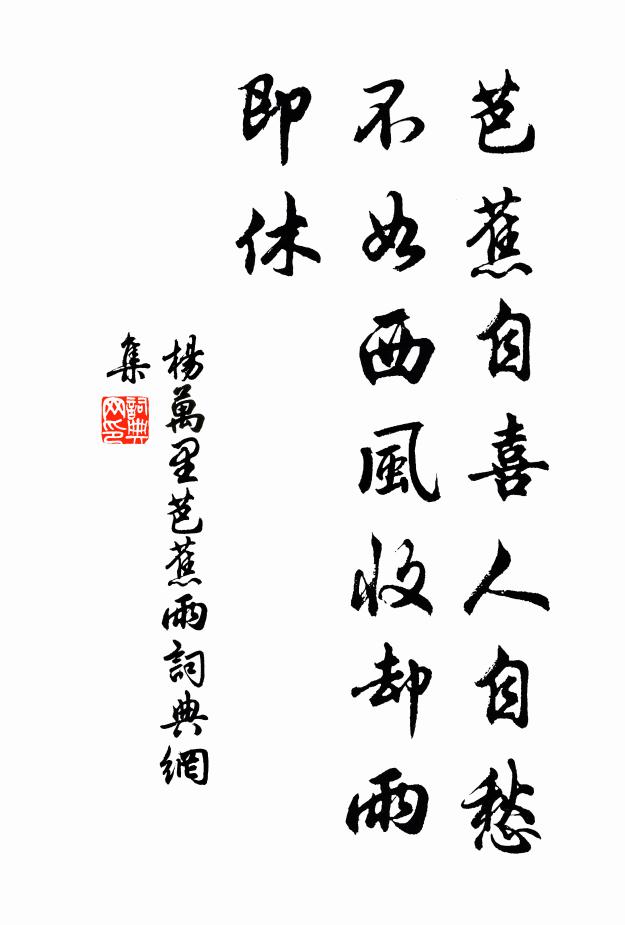 芭蕉自喜人自愁
不如西風收却雨
即休
楊萬里芭蕉雨詞典網
集
詞典網印